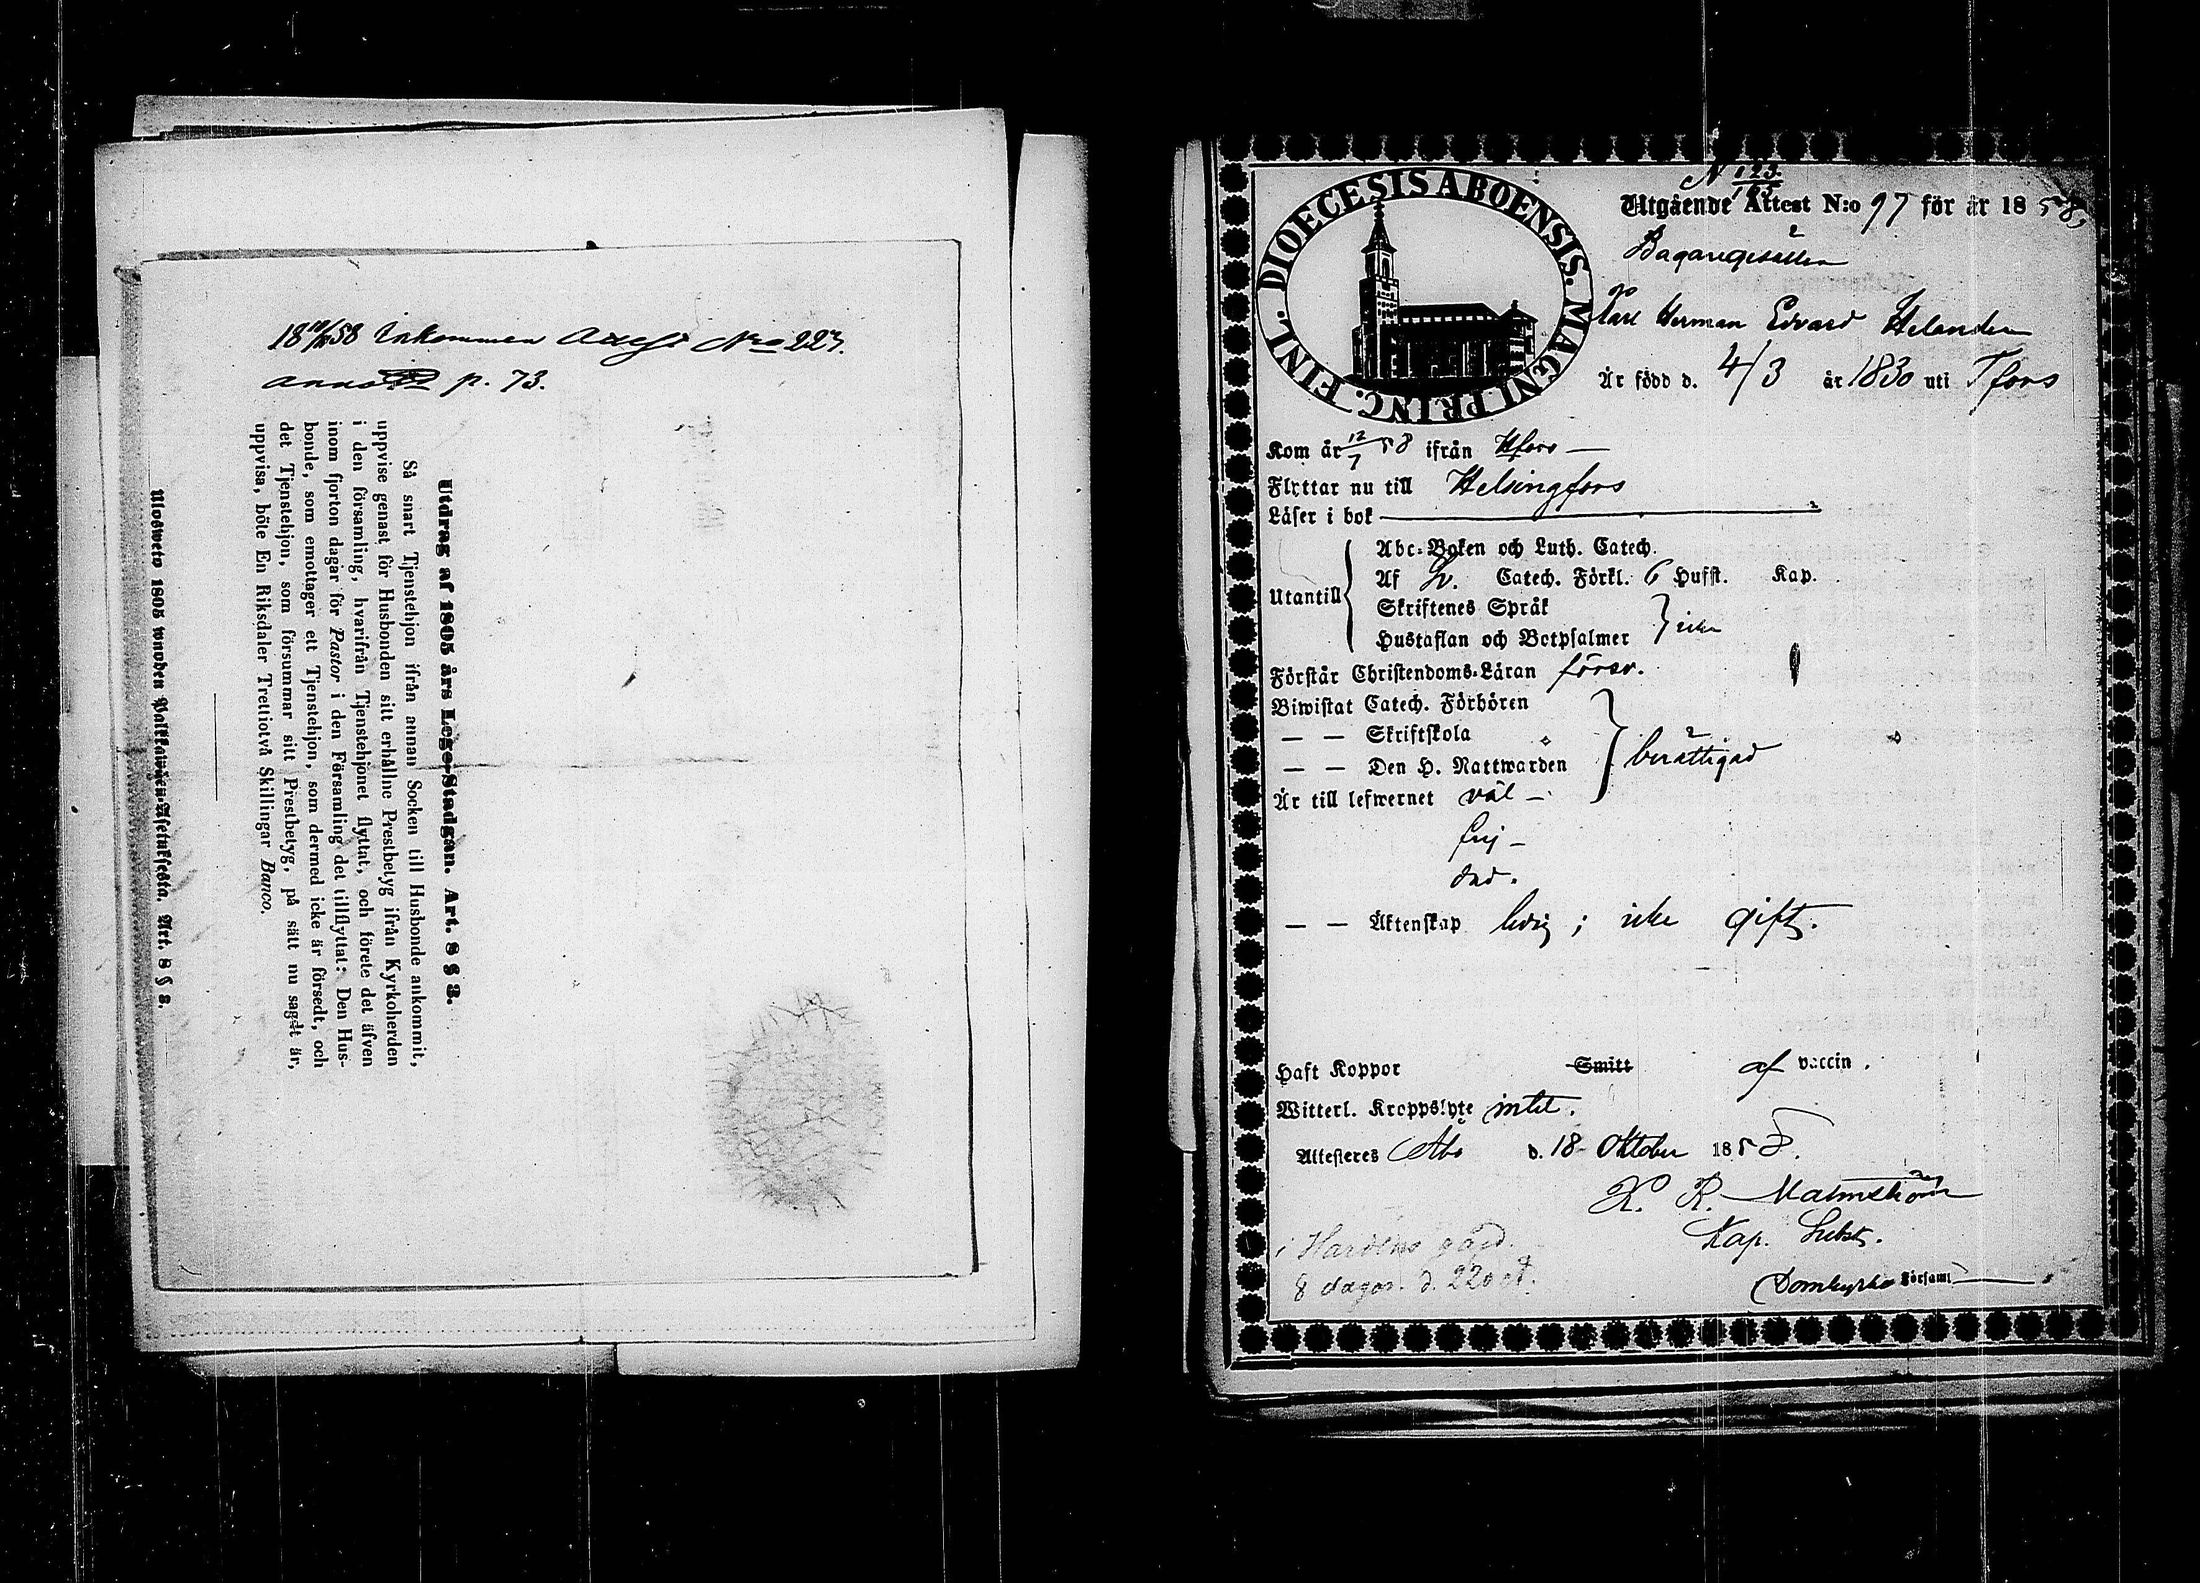 18 18/10 58 Inkommen Attest Nro 227.
anno p. 73.
Utdrag af 1805 års Lego-Stadgan. Art. 8 § 3.
Så snart Tjenstehjon ifrån annan Socken till Husbonde ankommit,
uppvise genast för Husbonden sitt erhållne Prestbetyg ifrån Kyrkoherden
i den församling, hvarifrån Tjenstehjonet flyttat, och förete det äfven
inom fjorton dagar för Pastor i den Församling det tillflyttat: Den Hus-
bonde, som emottager ett Tjenstehjon, som dermed icke är försedt, och
det Tjenstehjon, som försummar sitt Prestbetyg, på sätt nu sagdt är,
uppvisa, böte En Riksdaler Trettiotvå Skillingar Banco.
Ulosweto 1805 wuoden Palkkawäen-Asetuksesta. Art. 8 § 3.
DIOECESIS ABOENSIS. MAGNI PRINC. FINL.
N 123.
165
Utgående Attest N:o 97 för år 1858,
Bagaregesällen
Karl Herman Edvard Helander
Är född d. 4/3 år 1830 uti Tfors
Kom år 12/7 58 ifrån Hfors —
Flyttar nu till Helsingfors
Läser i bok
Utantill
Abc-Boken och Luth. Catech.
Af Sv. Catech. Förkl. 6 Hufst. Kap.
Skriftenes Språk
Hustaflan och Botpsalmer
icke
Förstår Christendoms-Läran försv.
Biwistat Catech. Förhören
— — Skriftskola
— — Den H. Nattwarden
berättigad
Är till lefwernet väl —
frej —
dad.
— — Äktenskap ledig; icke gift.
Haft Koppor Smitt af vaccin.
Witterl. Kroppslyte intet.
Attesteres Åbo d. 18 Oktober 1858.
K. R. Malmström
Kap. Subst.
Domkyrko Församl.
i Hardens gård.
8 dagar. d. 22 oct.